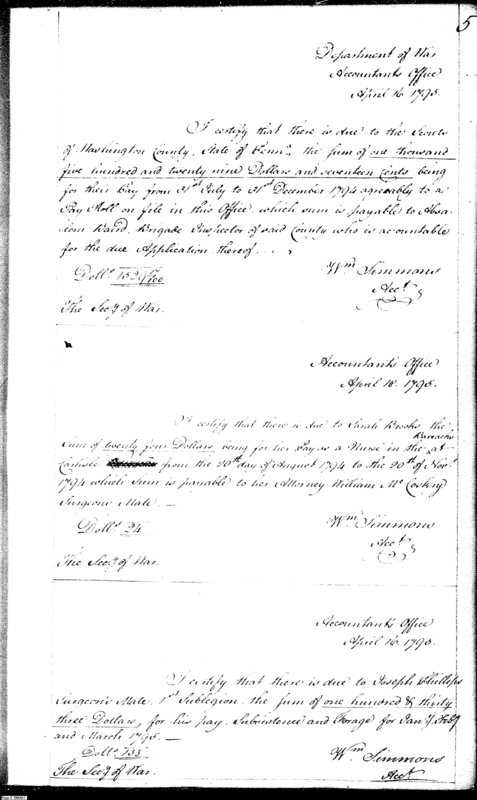 5
Department of War
Accountants Office
April 16 1795.
I certify that there is due to the Scouts
of Washington County, State of Penna. the sum of one thousand
five hundred and twenty nine Dollars and seventeen Cents being
for their Pay from 31st July to 31st December 1794 agreeably to a
Pay Roll on file in this Office, which sum is payable to Absa-
lom Baird, Brigade Inspector of said County who is accountable
for the due Application thereof.
Dolls. 1529 17/100
Wm Simmons
Acct.
The Secy of War.
Accountant's Office
April 18. 1795.
I certify that there is due to Sarah Brooks the
Sum of twenty four Dollars, being for her Pay as a Nurse in the Barracks at
Carlisle from the 20th day of August 1794 to the 20th of Novr.
1794 which sum is payable to her Attorney William Mc Coskry
Surgeons Mate.
Dolls. 24
Wm Simmons
Acct.
The Secy of War.
Accountant's Office
April 16. 1795.
I certify that there is due to Joseph Phillips
Surgeon's Mate, 1st Sublegion, the sum of one hundred & thirty
three Dollars, for his pay, Subsistence and Forage for Jany. Feby
and March 1795.
Dolls. 133
Wm Simmons
Acct
The Secy of War.